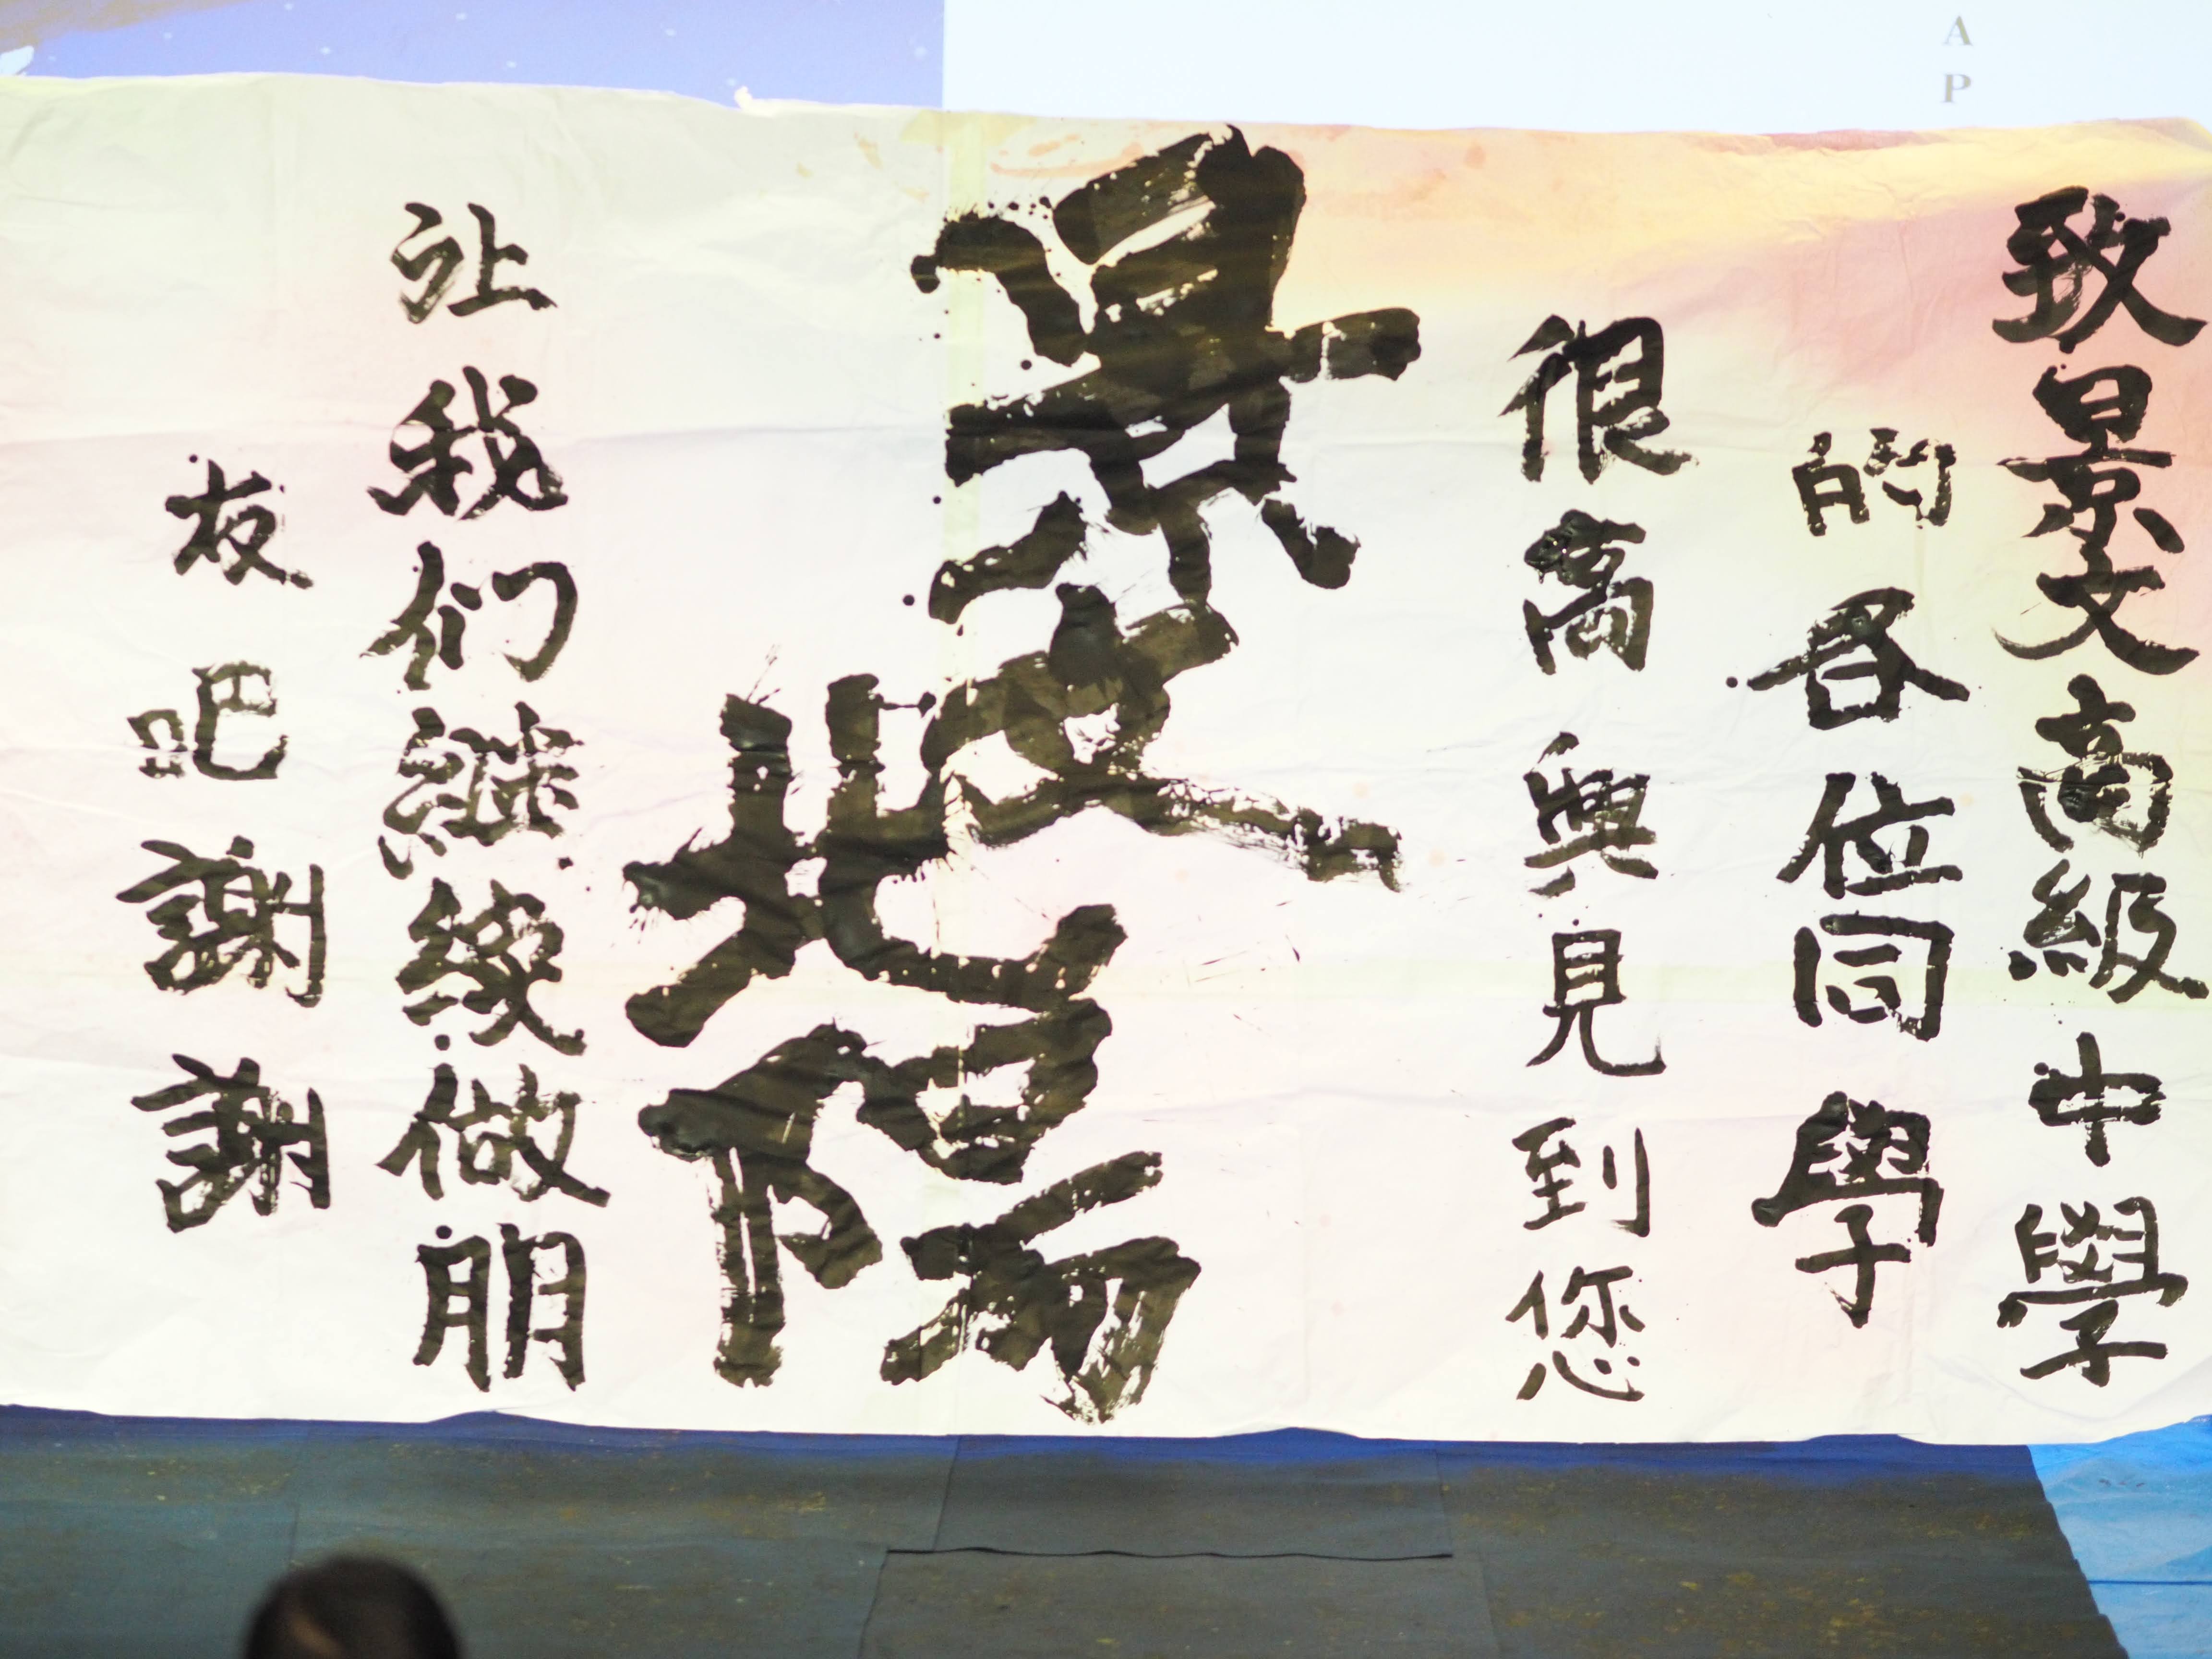 A
P
致景文高級中學
的各位同學
很高興見到您
景文
北陽
让我们継綾做朋
友吧謝謝